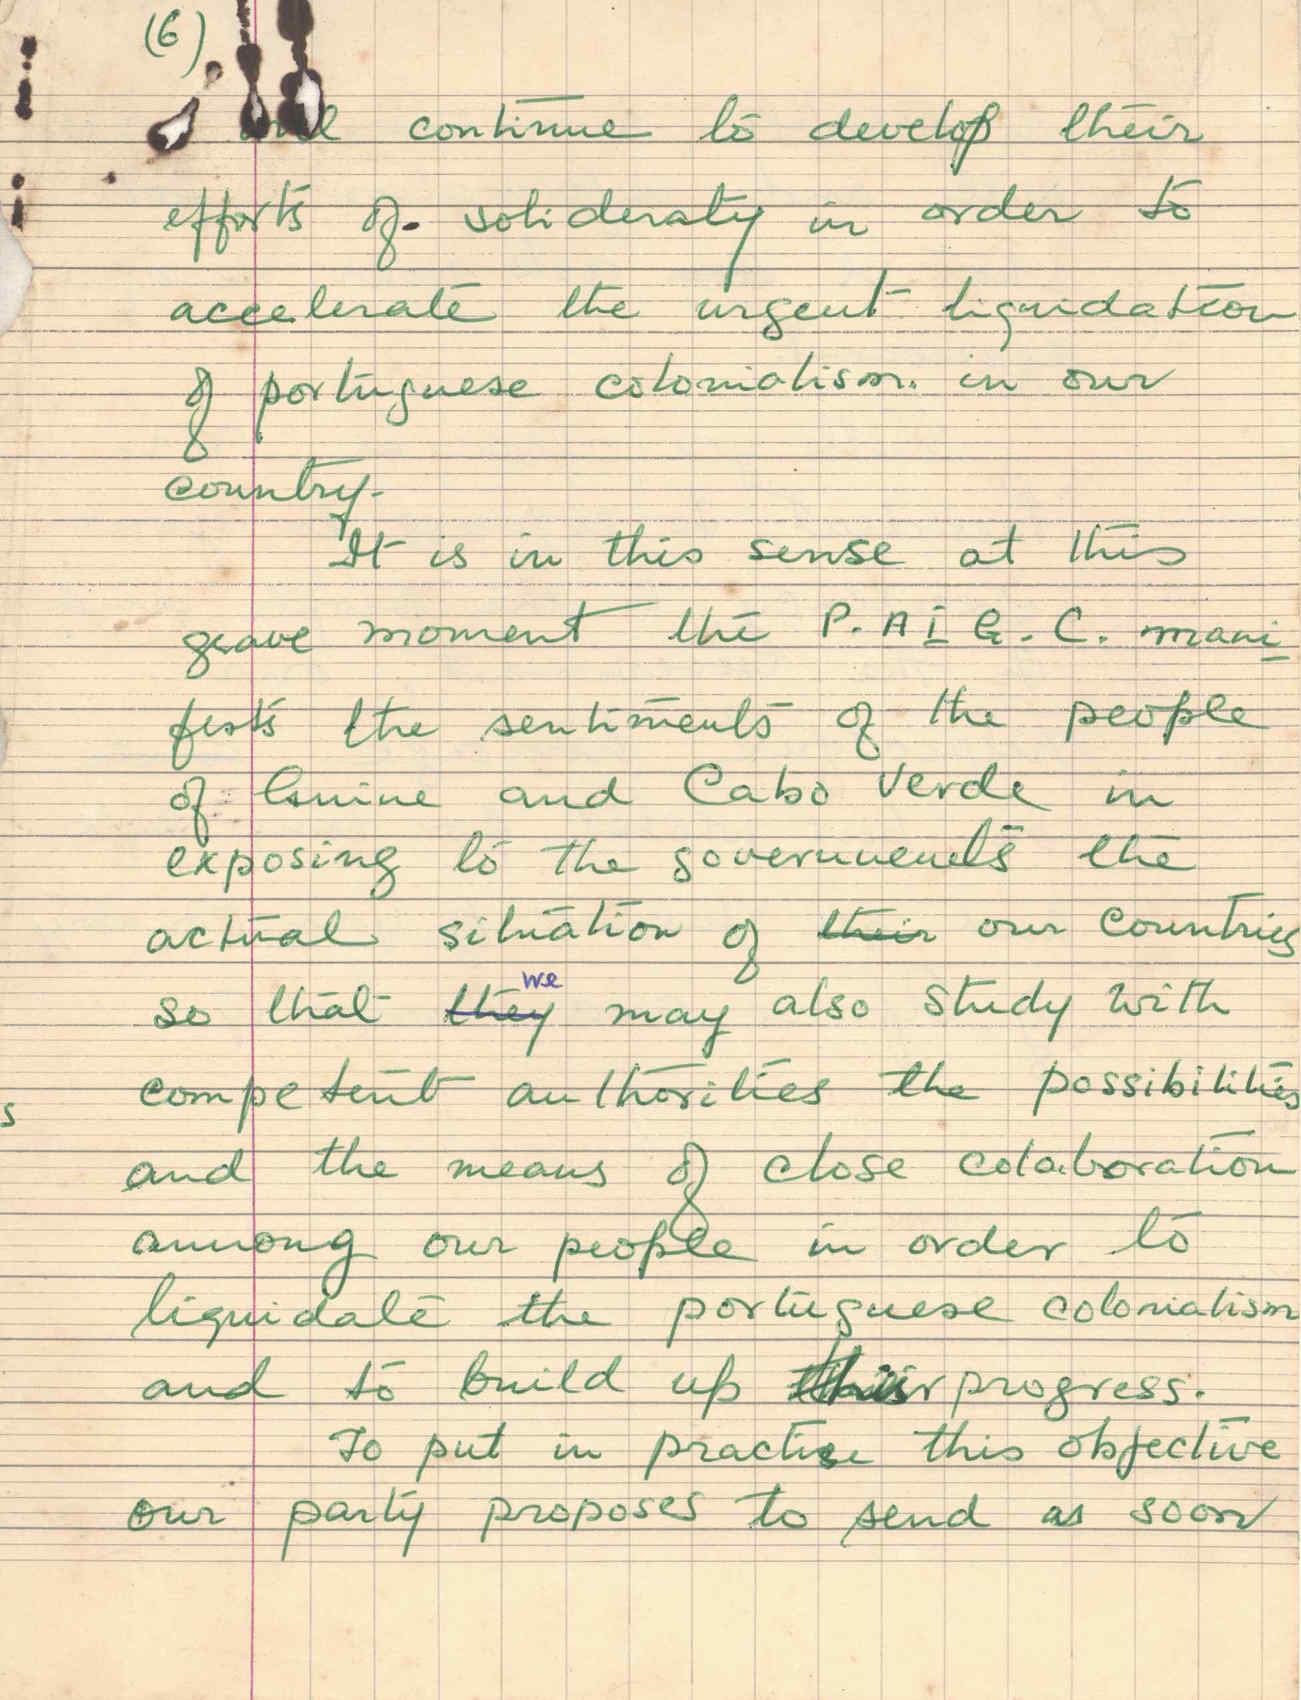 (6)
will continue to develop their
efforts of solideraty in order to
accelerate the urgent liquidation
of portuguese colonialism. in our
country.
It is in this sense at this
grave moment the P.A I G.C. mani
fests the sentiments of the people
of Guine and Cabo Verde in
exposing to the governments the
actual situation of their our countries
we
so that they may also study with
competent authorities the possibilities
s
and the means of close colaboration
among our people in order to
liquidate the portuguese colonialism
and to build up progress.
To put in practise this objective
our party proposes to send as soon